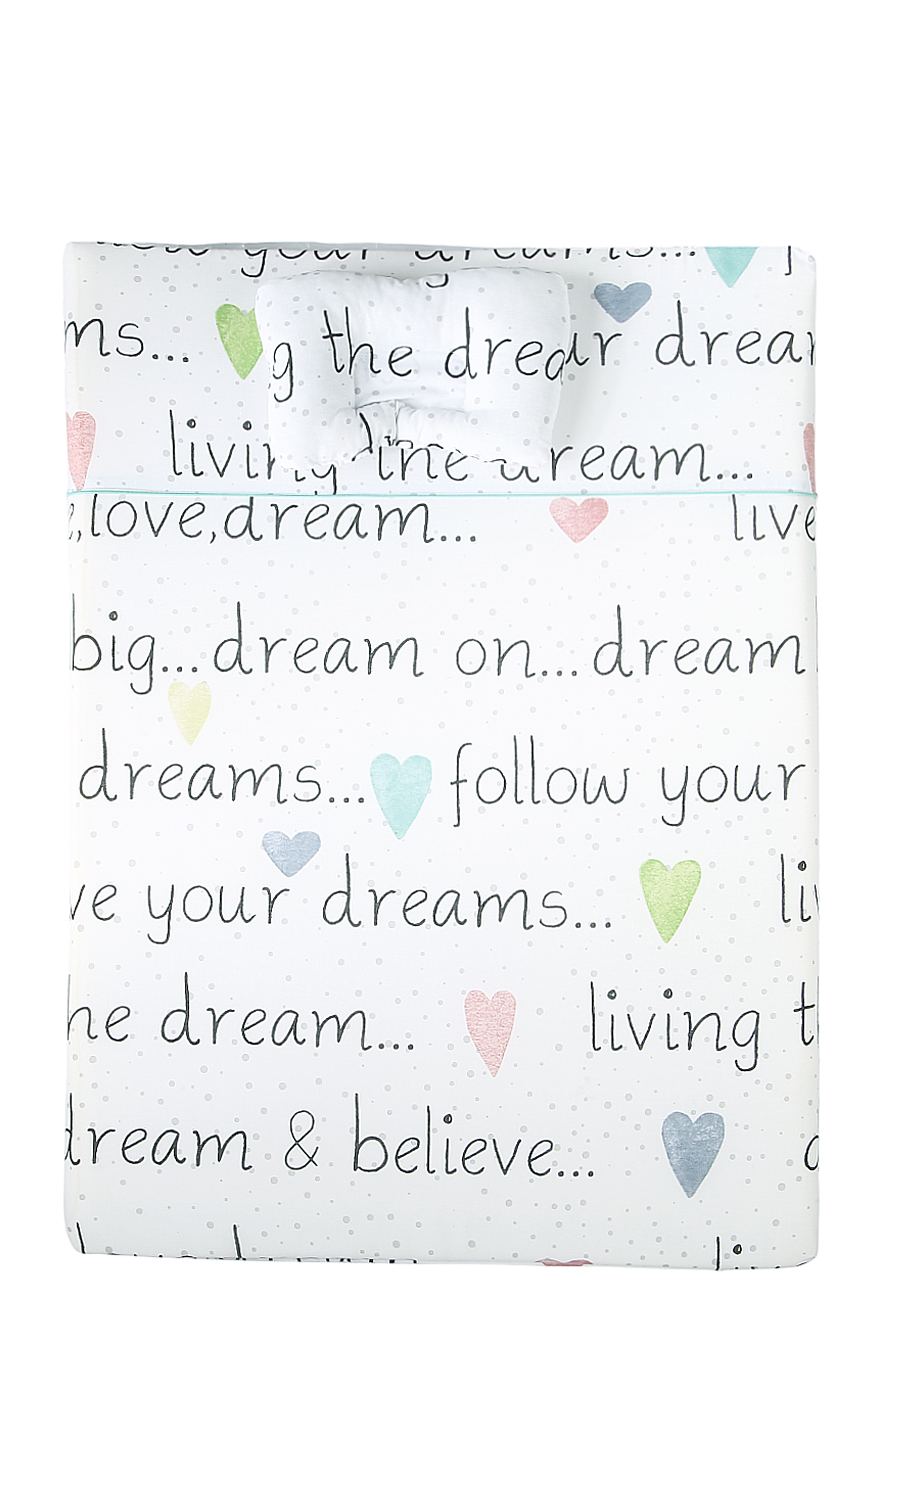 your dreams...
ms...
g the dream
ur dream
living the dream...
e,love,dream... live
big...dream on...dream
dreams... follow your
ve your dreams... liv
he dream... living t
dream & believe... d